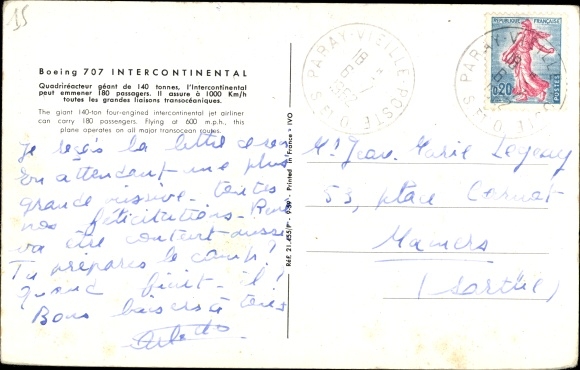 15
Boeing 707 INTERCONTINENTAL
Quadriréacteur géant de 140 tonnes, l'Intercontinental
peut emmener 180 passagers. Il assure à 1000 Km/h
toutes les grandes liaisons transocéaniques.
The giant 140-ton four-engined intercontinental jet airliner
can carry 180 passengers. Flying at 600 m.p.h., this
plane operates on all major transocean routes.
Je reçois la lettre
en attendant une plus
grande missive toutes
nos félicitations.
va être content aussi
Tu prépares le camp?
Quand finit-il?
Bons baisers à tous
Réf. 21.455 P - 9-59 - Printed in France - IVO
PARAY-VIEILLE-POSTE
S. ET O.
18
RÉPUBLIQUE FRANÇAISE
0,20
POSTES
PARAY-VIEILLE-POSTE
S. ET O.
Mr Jean-Marie
53, place Carnot
Mamers
(Sarthe)